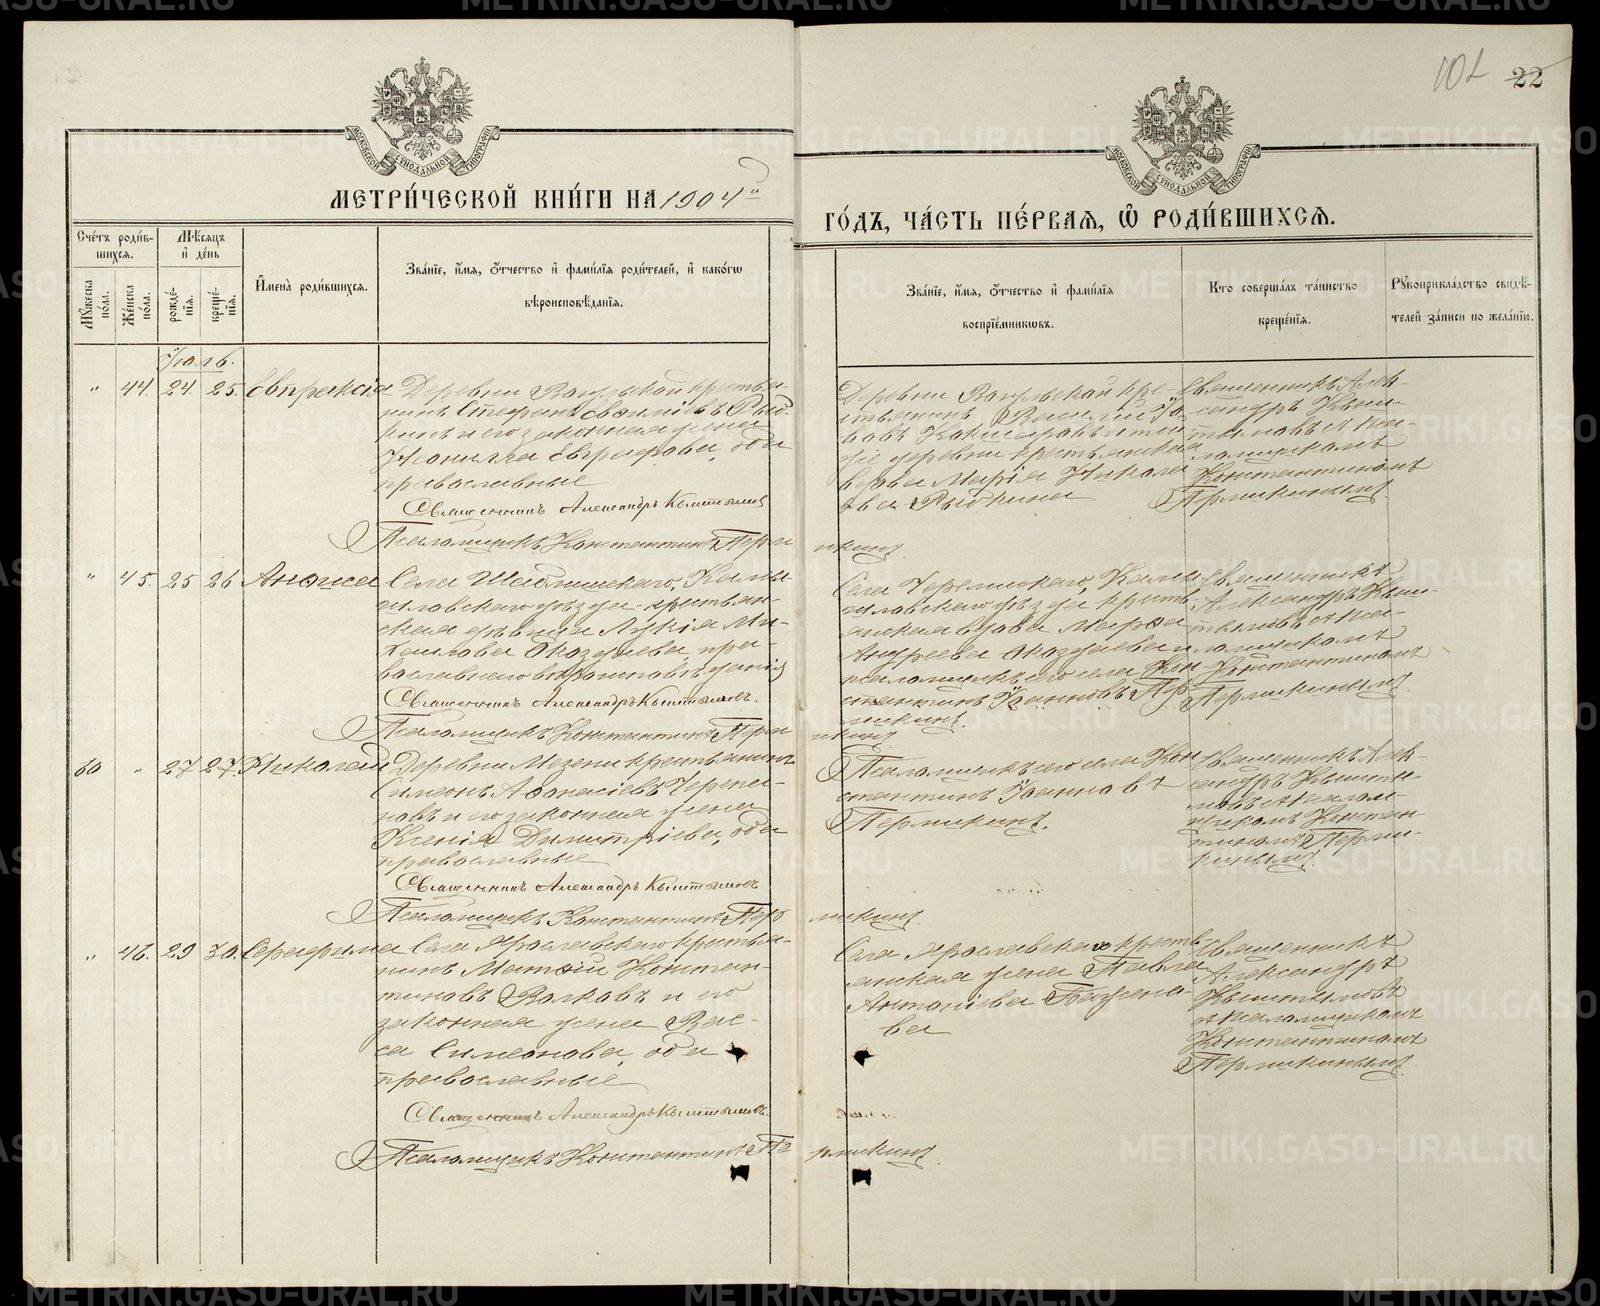 102 22
МОСКОВСКОЙ СУНОДАЛЬНОЙ ТИПОГРАФІИ
МОСКОВСКОЙ СУНОДАЛЬНОЙ ТИПОГРАФІИ
МЕТРИ́ЧЕСКОЙ КНИ́ГИ НА 1904й
ГО́ДЪ, ЧА́СТЬ ПЕ́РВАѦ, Ѽ РОДИ́ВШИХСѦ.
Сче́тъ роди́в-
шихсѧ.
Мѣ́сѧцъ
и҆ де́нь
Мꙋ́жеска
по́ла.
Же́нска
по́ла.
рожде́-
нїѧ.
креще́-
нїѧ.
И҆мена̀ роди́вшихсѧ.
Зва́нїе, и҆́мѧ, ѻ҆́тчество и҆ фами́лїѧ роди́телей, и҆ како́гѡ
вѣроисповѣ́данїѧ.
Зва́нїе, и҆́мѧ, ѻ҆́тчество и҆ фами́лїѧ
воспрїе́мникѡвъ.
Кто соверша́лъ та́инство
креще́нїѧ.
Рꙋкоприкла́дство свидѣ́-
телей за́писи по жела́нїю.
Іюль.
" 44. 24 25. Евпраксія
Деревни Вагульской крестья-
нинъ Стефанъ Евѳиміевъ Рыд-
кинъ и его законная жена
Неонилла Евграфова, оба
православные
Священникъ Александръ Кыштымов
Псаломщикъ Константинъ Пермикинъ
Деревни Вагульской кре-
стьянинъ Василій
той
же деревни крестьянская
Марія Никола
ева Рыдкина
Священникъ Алек-
сандръ Кыш-
тымовъ с пса-
ломщикомъ
Константиномъ
Пермикинымъ.
" 45. 25 26 Анѳиса
Села Камы-
шловскаго уѣзда крестьян-
ская дѣвица Лукія Ми-
хаилова пра-
вославнаго вѣроисповѣданія
Священникъ Александръ Кыштымовъ.
Псаломщикъ Константинъ Пермикинъ
Села Черемискаго, Камы-
шловскаго уѣзда кресть
янская вдова Марѳа
Андреева и
псаломщикъ сего села Кон
стантинъ Іоанновъ Пер
микинъ.
Священникъ
Александръ Кыш-
тымовъ с пса-
ломщикомъ
Константиномъ
Пермикинымъ.
60 " 27 27. Николай
Деревни Мезени крестьянинъ
Симеонъ Аѳанасіевъ Черепа-
новъ и его законная жена
Ксенія Димитріева, оба
православные
Священникъ Александръ Кыштымовъ
Псаломщикъ Константинъ Пермикинъ
Псаломщикъ сего села Кон
стантинъ Іоанновъ
Пермикинъ.
Священникъ Алек-
сандръ Кышты-
мовъ с псалом-
щикомъ Констан-
тиномъ Перми-
кинымъ.
" 46. 29 30. Серафима
Села Ярославскаго крестья-
нинъ Матѳій Констан-
тиновъ Волковъ и его
законная жена Вас-
са Симеонова, оба
православные
Священникъ Александръ Кыштымовъ
Псаломщикъ Константинъ Пермикинъ
Села Ярославскаго кресть
янская жена Павла
Антоніева Бажено-
ва
Священникъ
Александръ
Кыштымовъ
с псаломщикомъ
Константиномъ
Пермикинымъ.
METRIKI.GASO-URAL.RU